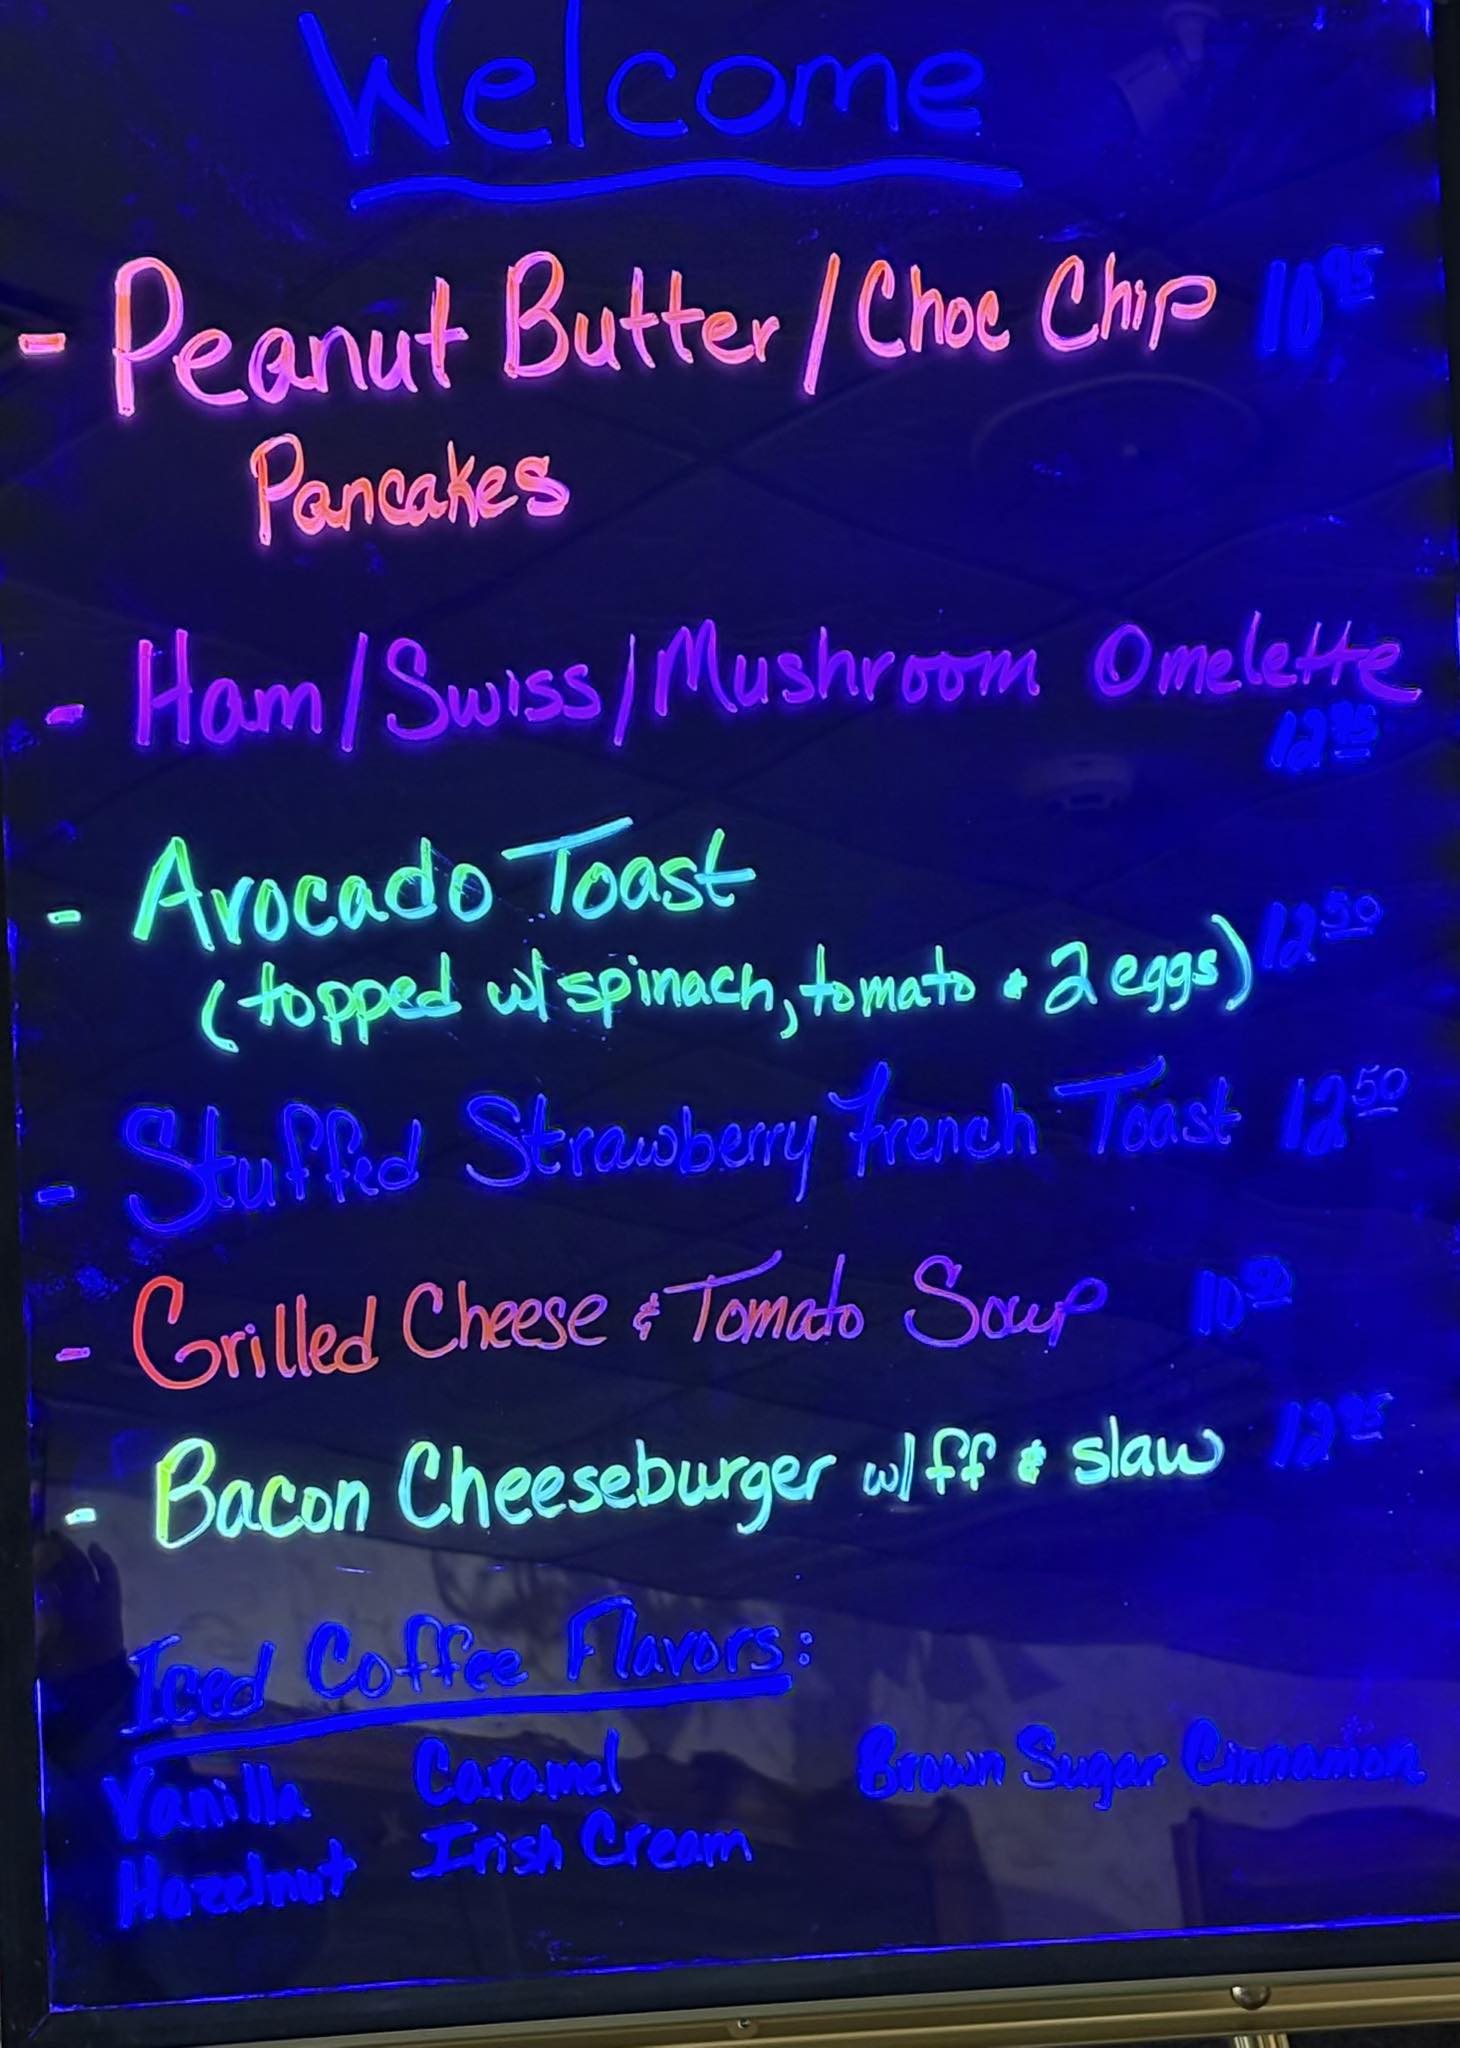 Welcome
- Peanut Butter / Choc Chip 10 95
Pancakes
- Ham/Swiss/Mushroom Omelette
12 95
- Avocado Toast
(topped w/ spinach, tomato & 2 eggs) 12 50
- Stuffed Strawberry French Toast 12 50
- Grilled Cheese & Tomato Soup
- Bacon Cheeseburger w/ ff & slaw 12 95
Iced Coffee Flavors:
Vanilla Caramel Brown Sugar Cinnamon
Hazelnut Irish Cream